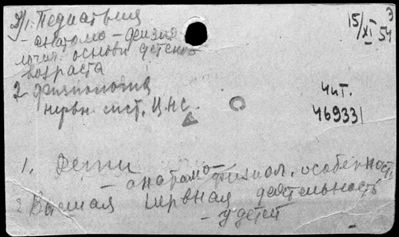 1. Педиатрия
- анатомо-физио
логич. основы детског
возраста
2 Физиология
нервн. сист. ЦНС.
15/XI 54
Чит.
469331
1. Дети
- анатомо-физиол. особенност.
2. Высшая нервная деятельность
- у детей